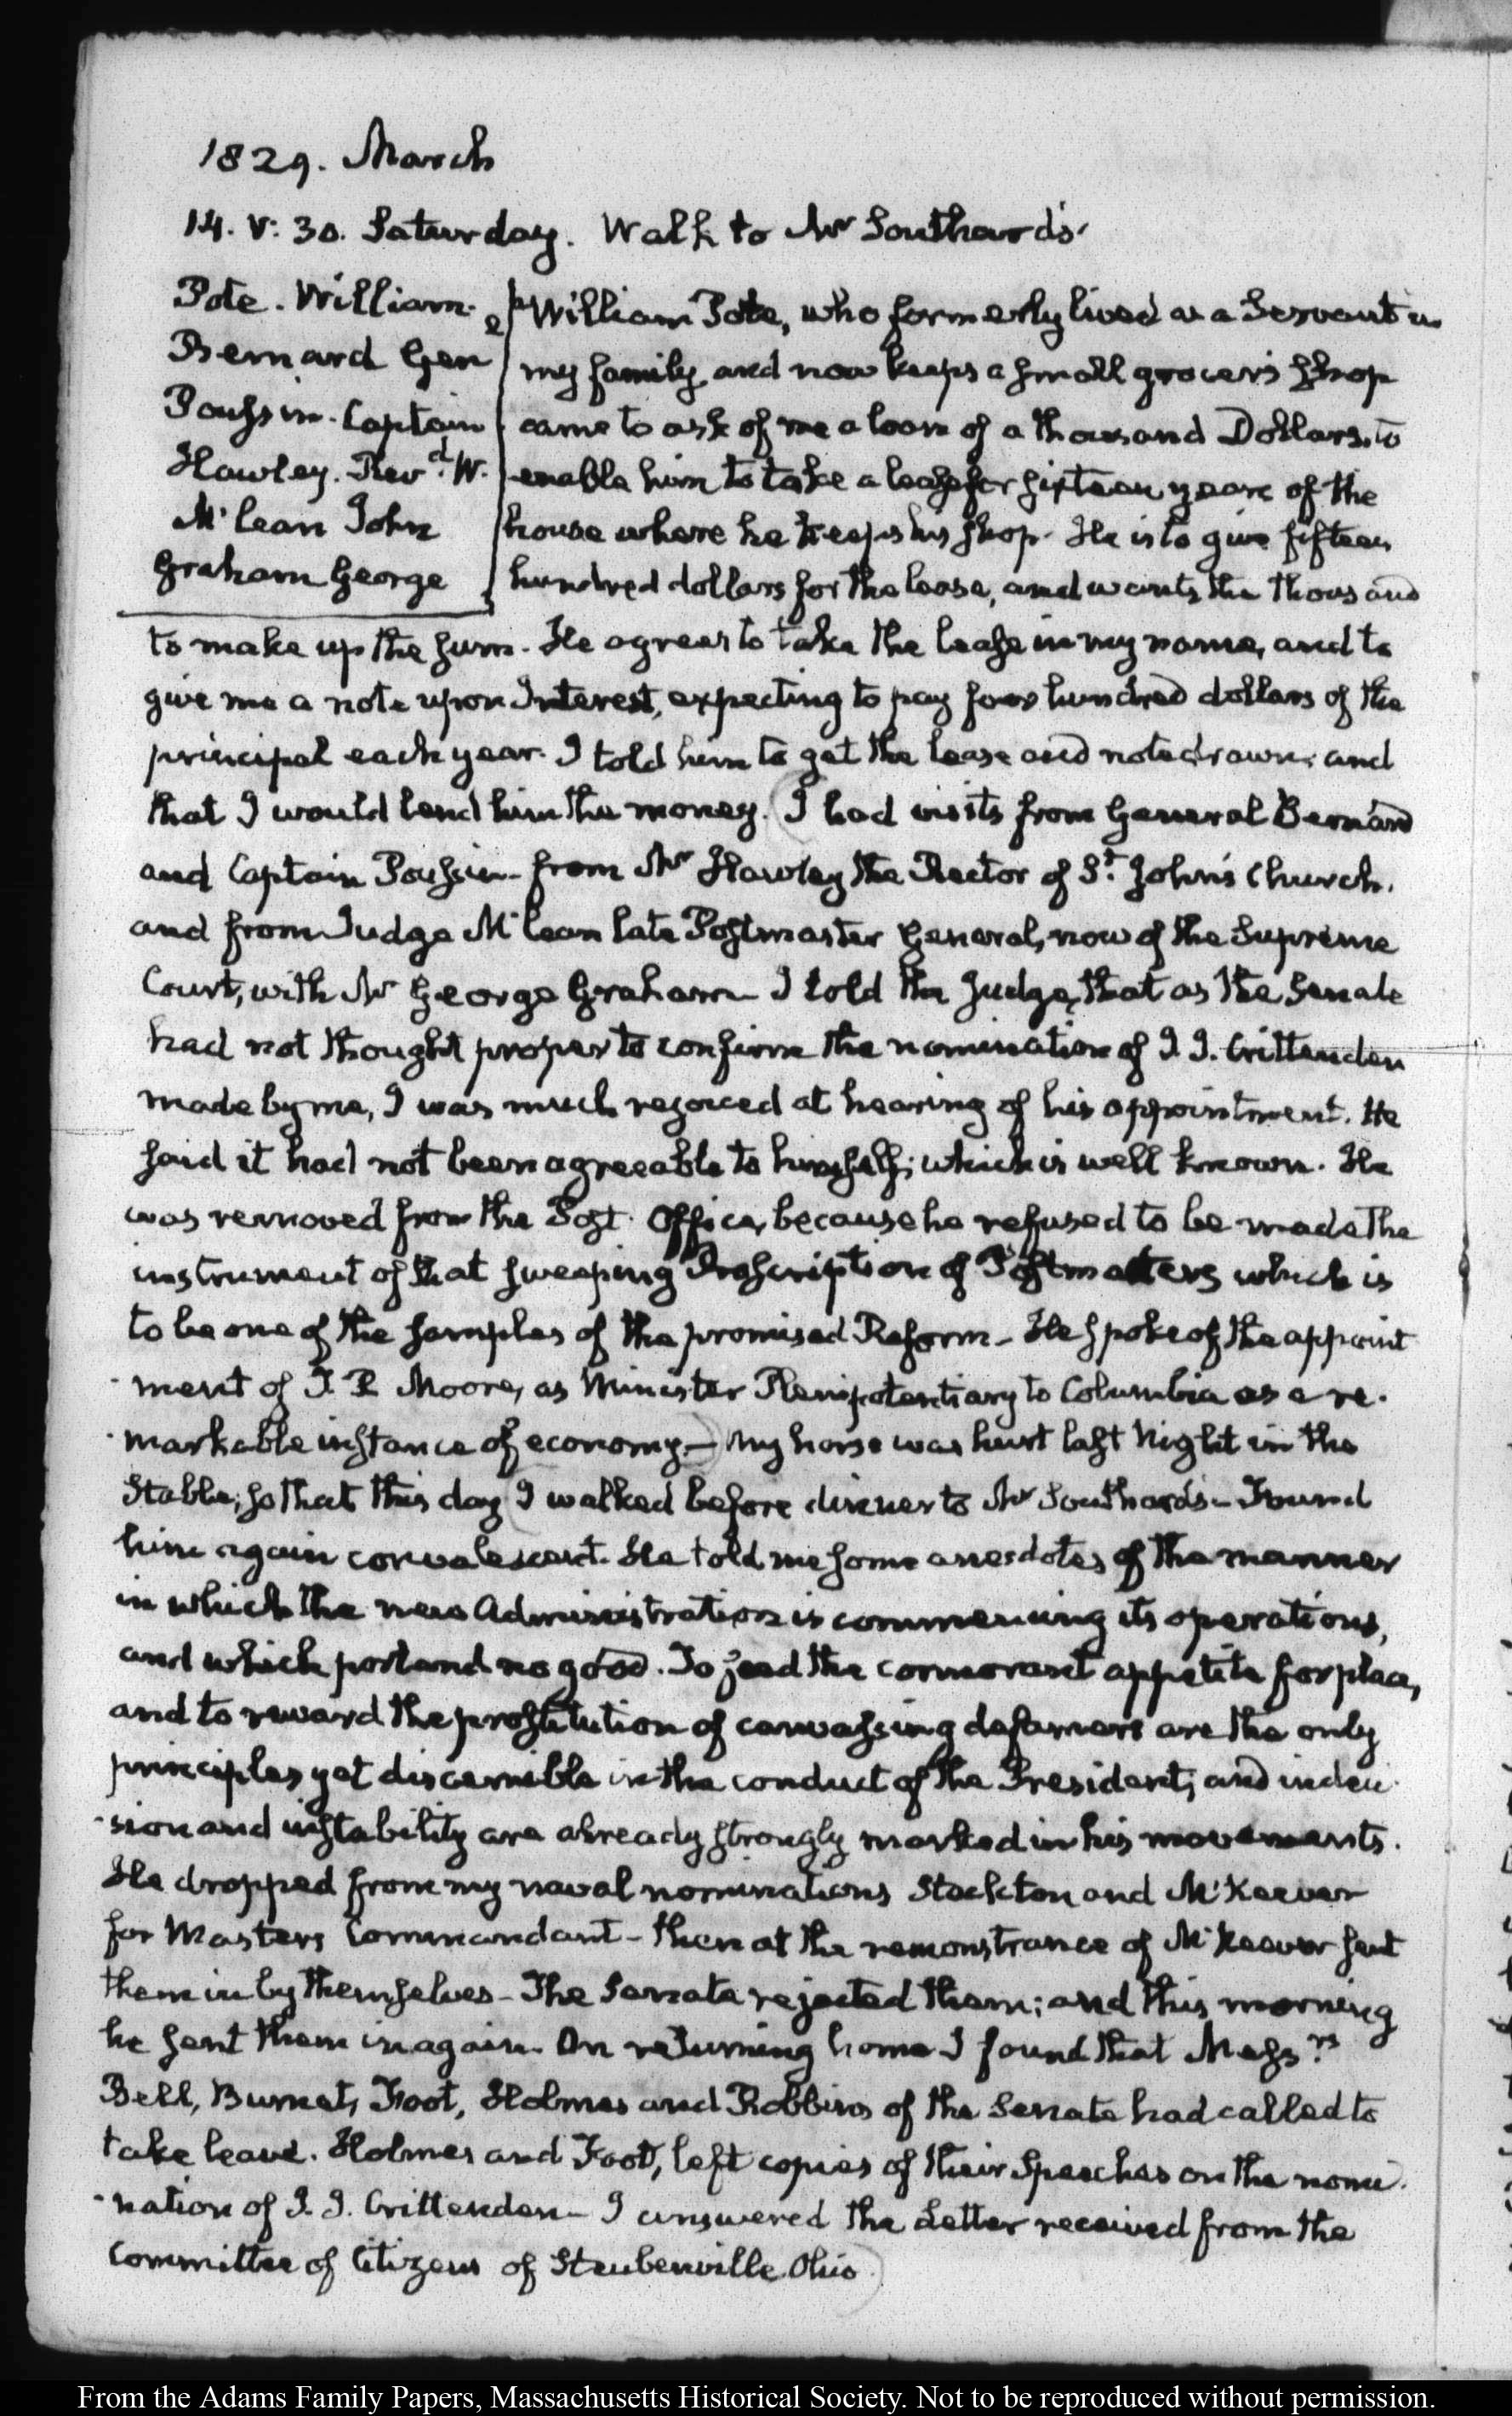 1829. March
14. V: 30. Saturday. Walk to Mr Southard's.
Pote. William.
Bernard Gen
Poussin. Captain
Hawley. Revd. W.
McLean John
Graham George
William Pote, who formerly lived as a Servant in
my family, and now keeps a small grocer's shop
came to ask of me a loan of a thousand Dollars, to
enable him to take a lease for sixteen years of the
house where he keeps his shop. He is to give fifteen
hundred dollars for the lease, and wants the thousand
to make up the sum. He agrees to take the lease in my name, and to
give me a note upon Interest, expecting to pay four hundred dollars of the
principal each year. I told him to get the lease and note drawn, and
that I would lend him the money. I had visits from General Bernard
and Captain Poussin – from Mr Hawley the Rector of St. John's Church,
and from Judge McLean late Postmaster General, now of the Supreme
Court, with Mr George Graham – I told the Judge, that as the Senate
had not thought proper to confirm the nomination of J. J. Crittenden
made by me, I was much rejoiced at hearing of his appointment. He
said it had not been agreeable to himself; which is well known. He
was removed from the Post Office, because he refused to be made the
instrument of that sweeping Proscription of Postmasters which is
to be one of the samples of the promised Reform – He spoke of the appoint
ment of T. P. Moore, as Minister Plenipotentiary to Columbia as a re-
markable instance of economy. – My horse was hurt last Night in the
Stable; so that this day I walked before dinner to Mr Southard's – Found
him again convalescent. He told me some anecdotes of the manner
in which the new Administration is commencing its operations,
and which portend no good. To feed the cormorant appetite for place,
and to reward the prostitution of canvassing defamers are the only
principles yet discernible in the conduct of the President; and indeci-
sion and instability are already strongly marked in his movements.
He dropped from my naval nominations Stockton and McKeever
for Masters Commandant – then at the remonstrance of McKeever sent
them in by themselves – The Senate rejected them; and this morning
he sent them in again. On returning home I found that Messrs
Bell, Burnet, Foot, Holmes and Robbins of the Senate had called to
take leave. Holmes and Foot, left copies of their Speeches on the nomi-
nation of J. J. Crittenden – I answered the Letter received from the
Committee of Citizens of Steubenville Ohio
From the Adams Family Papers, Massachusetts Historical Society. Not to be reproduced without permission.